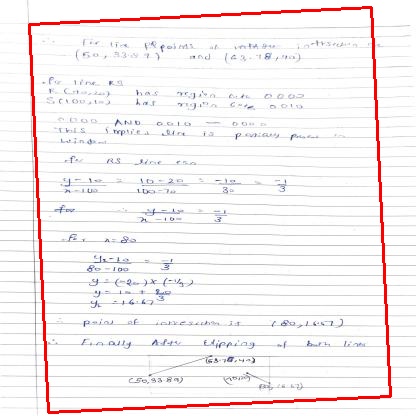 ∴ For line PQ points of intersection
(50, 33.89) and (63.78, 40)
for line RS
R(70,20) has region code 0000
S(100,10) has region code 0010
0000 AND 0010 — 0000
This implies line is
window
for RS line eqn
y-10/x-100 = 10-20/100-70 = -10/30 = -1/3
∴ y-10/x-100 = -1/3
For x=80
y-10/80-100 = -1/3
y = (-20) x (-1/3)
y = 10 + 20/3
y = 16.67
∴ point of intersection is (80, 16.67)
∴ Finally After Clipping of both lines
(63.78, 40)
(50, 33.89) (70,20)
(80, 16.67)